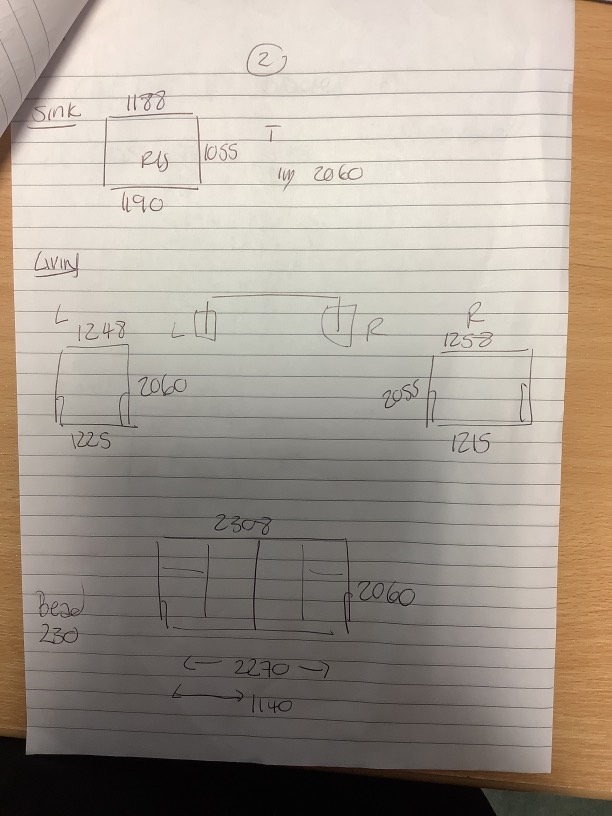 2
Sink
1188
1055
T
2060
1190
Living
L
1248
L
R
R
1258
2060
2055
1225
1215
2308
2060
Bead
230
2270
1140